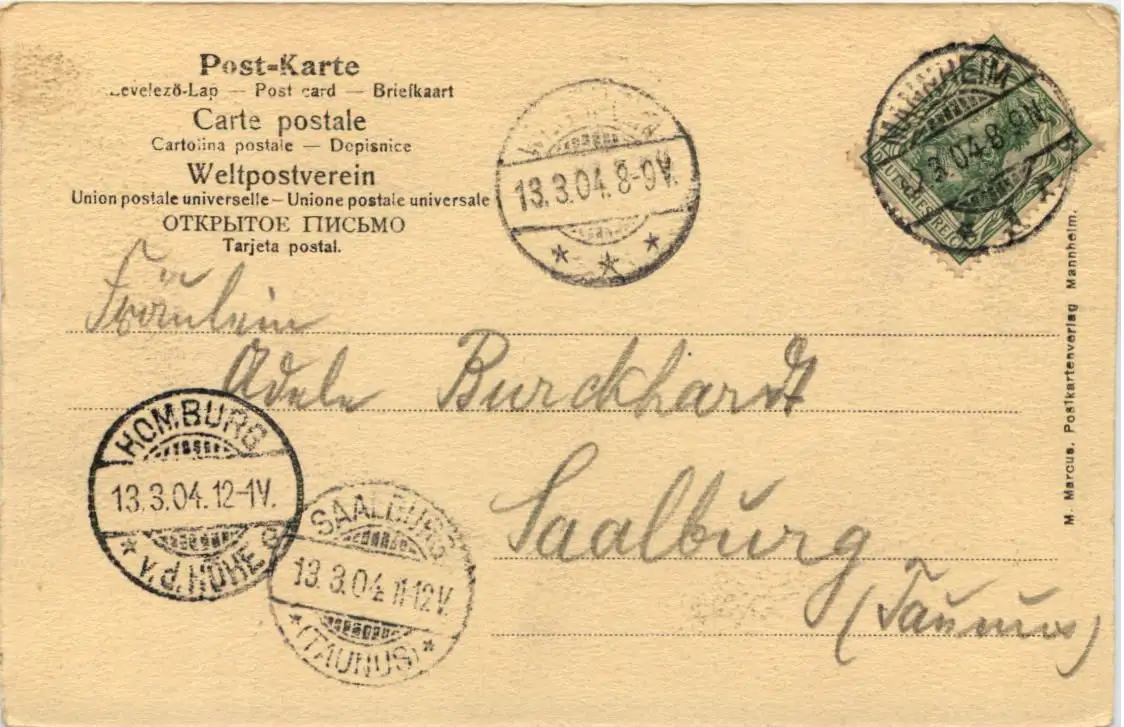 Post-Karte
Levelező-Lap — Post card — Briefkaart
Carte postale
Cartolina postale — Dopisnice
Weltpostverein
Union postale universelle – Unione postale universale
ОТКРЫТОЕ ПИСЬМО
Tarjeta postal.
13.3.04.8-9V.
MANNHEIM
3.04.8-9N.
DEUTSCHES REICH
Fräulein
Adele Burckhardt
Saalburg
(Taunus)
HOMBURG
13.3.04.12-1V.
V.D. HÖHE
SAALBURG
13.3.04.11-12V.
(TAUNUS)
M. Marcus. Postkartenverlag Mannheim.